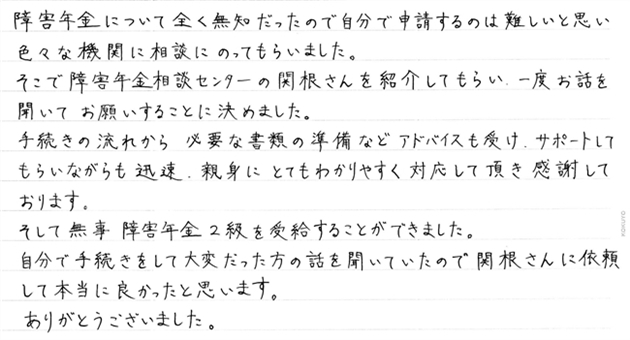 障害年金について全く無知だったので自分で申請するのは難しいと思い
色々な機関に相談にのってもらいました。
そこで障害年金相談センターの関根さんを紹介してもらい、一度お話を
聞いてお願いすることに決めました。
手続きの流れから 必要な書類の準備などアドバイスも受け、サポートして
もらいながらも迅速、親身にとてもわかりやすく対応して頂き感謝して
おります。
そして無事 障害年金2級を受給することができました。
自分で手続きをして大変だった方の話を聞いていたので関根さんに依頼
して本当に良かったと思います。
ありがとうございました。
KOKUYO